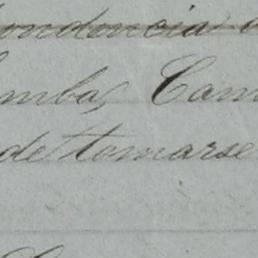 ondencia
omba, Cam
de tomarse